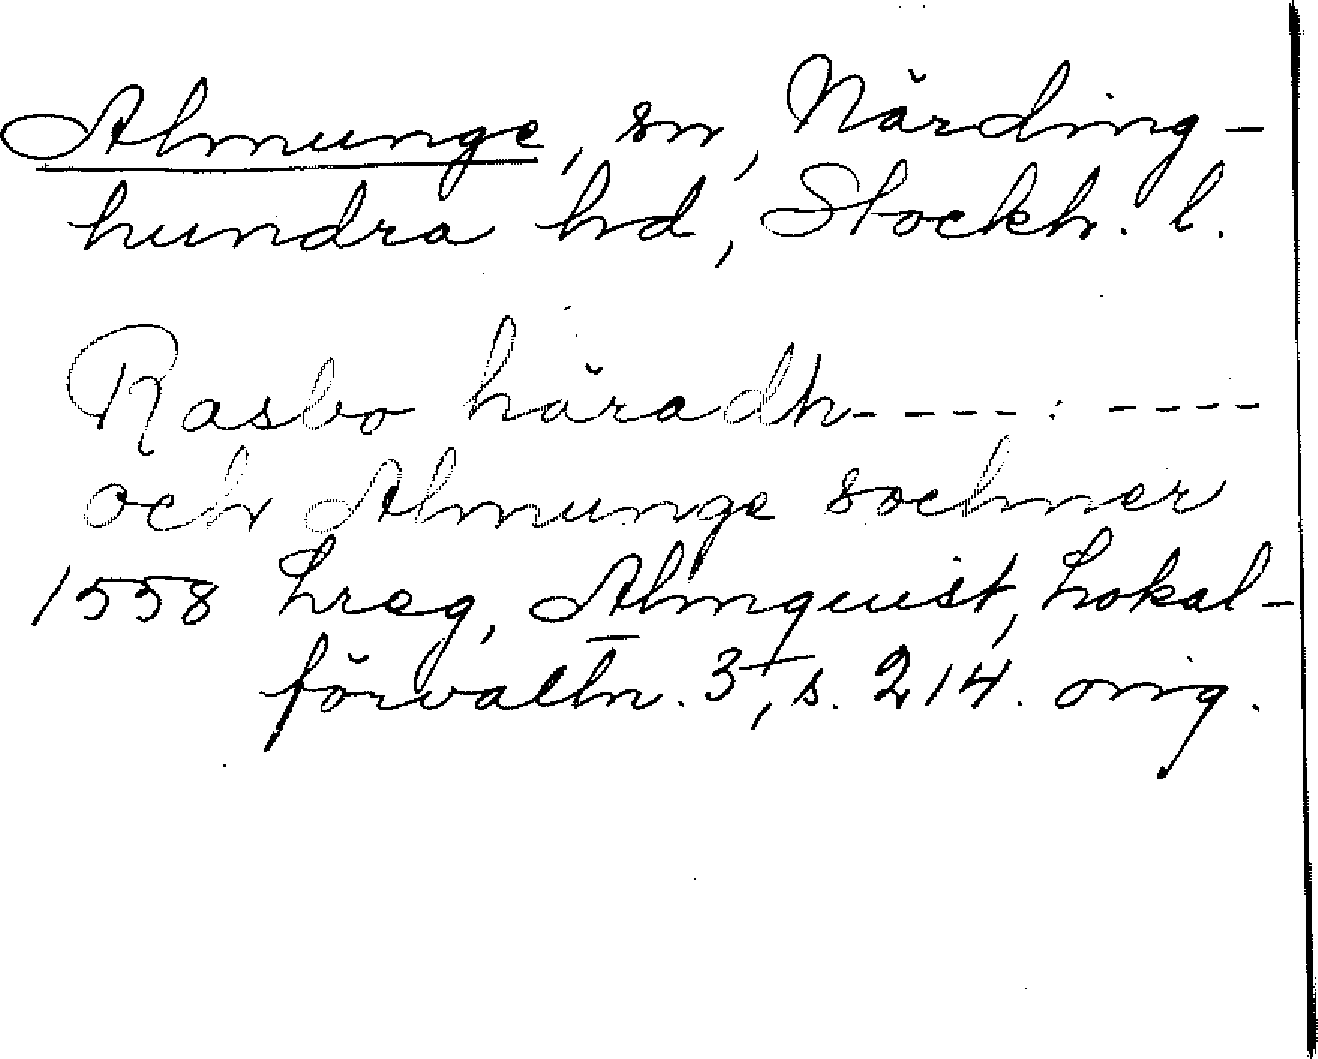 Almunge, sn, Närding-
hundra hd, Stockh. l.
Rasbo häradh----: ----
och Almunge sochner
1558 Lreg, Almquist, Lokal-
förvaltn. 3, s. 214. orig.